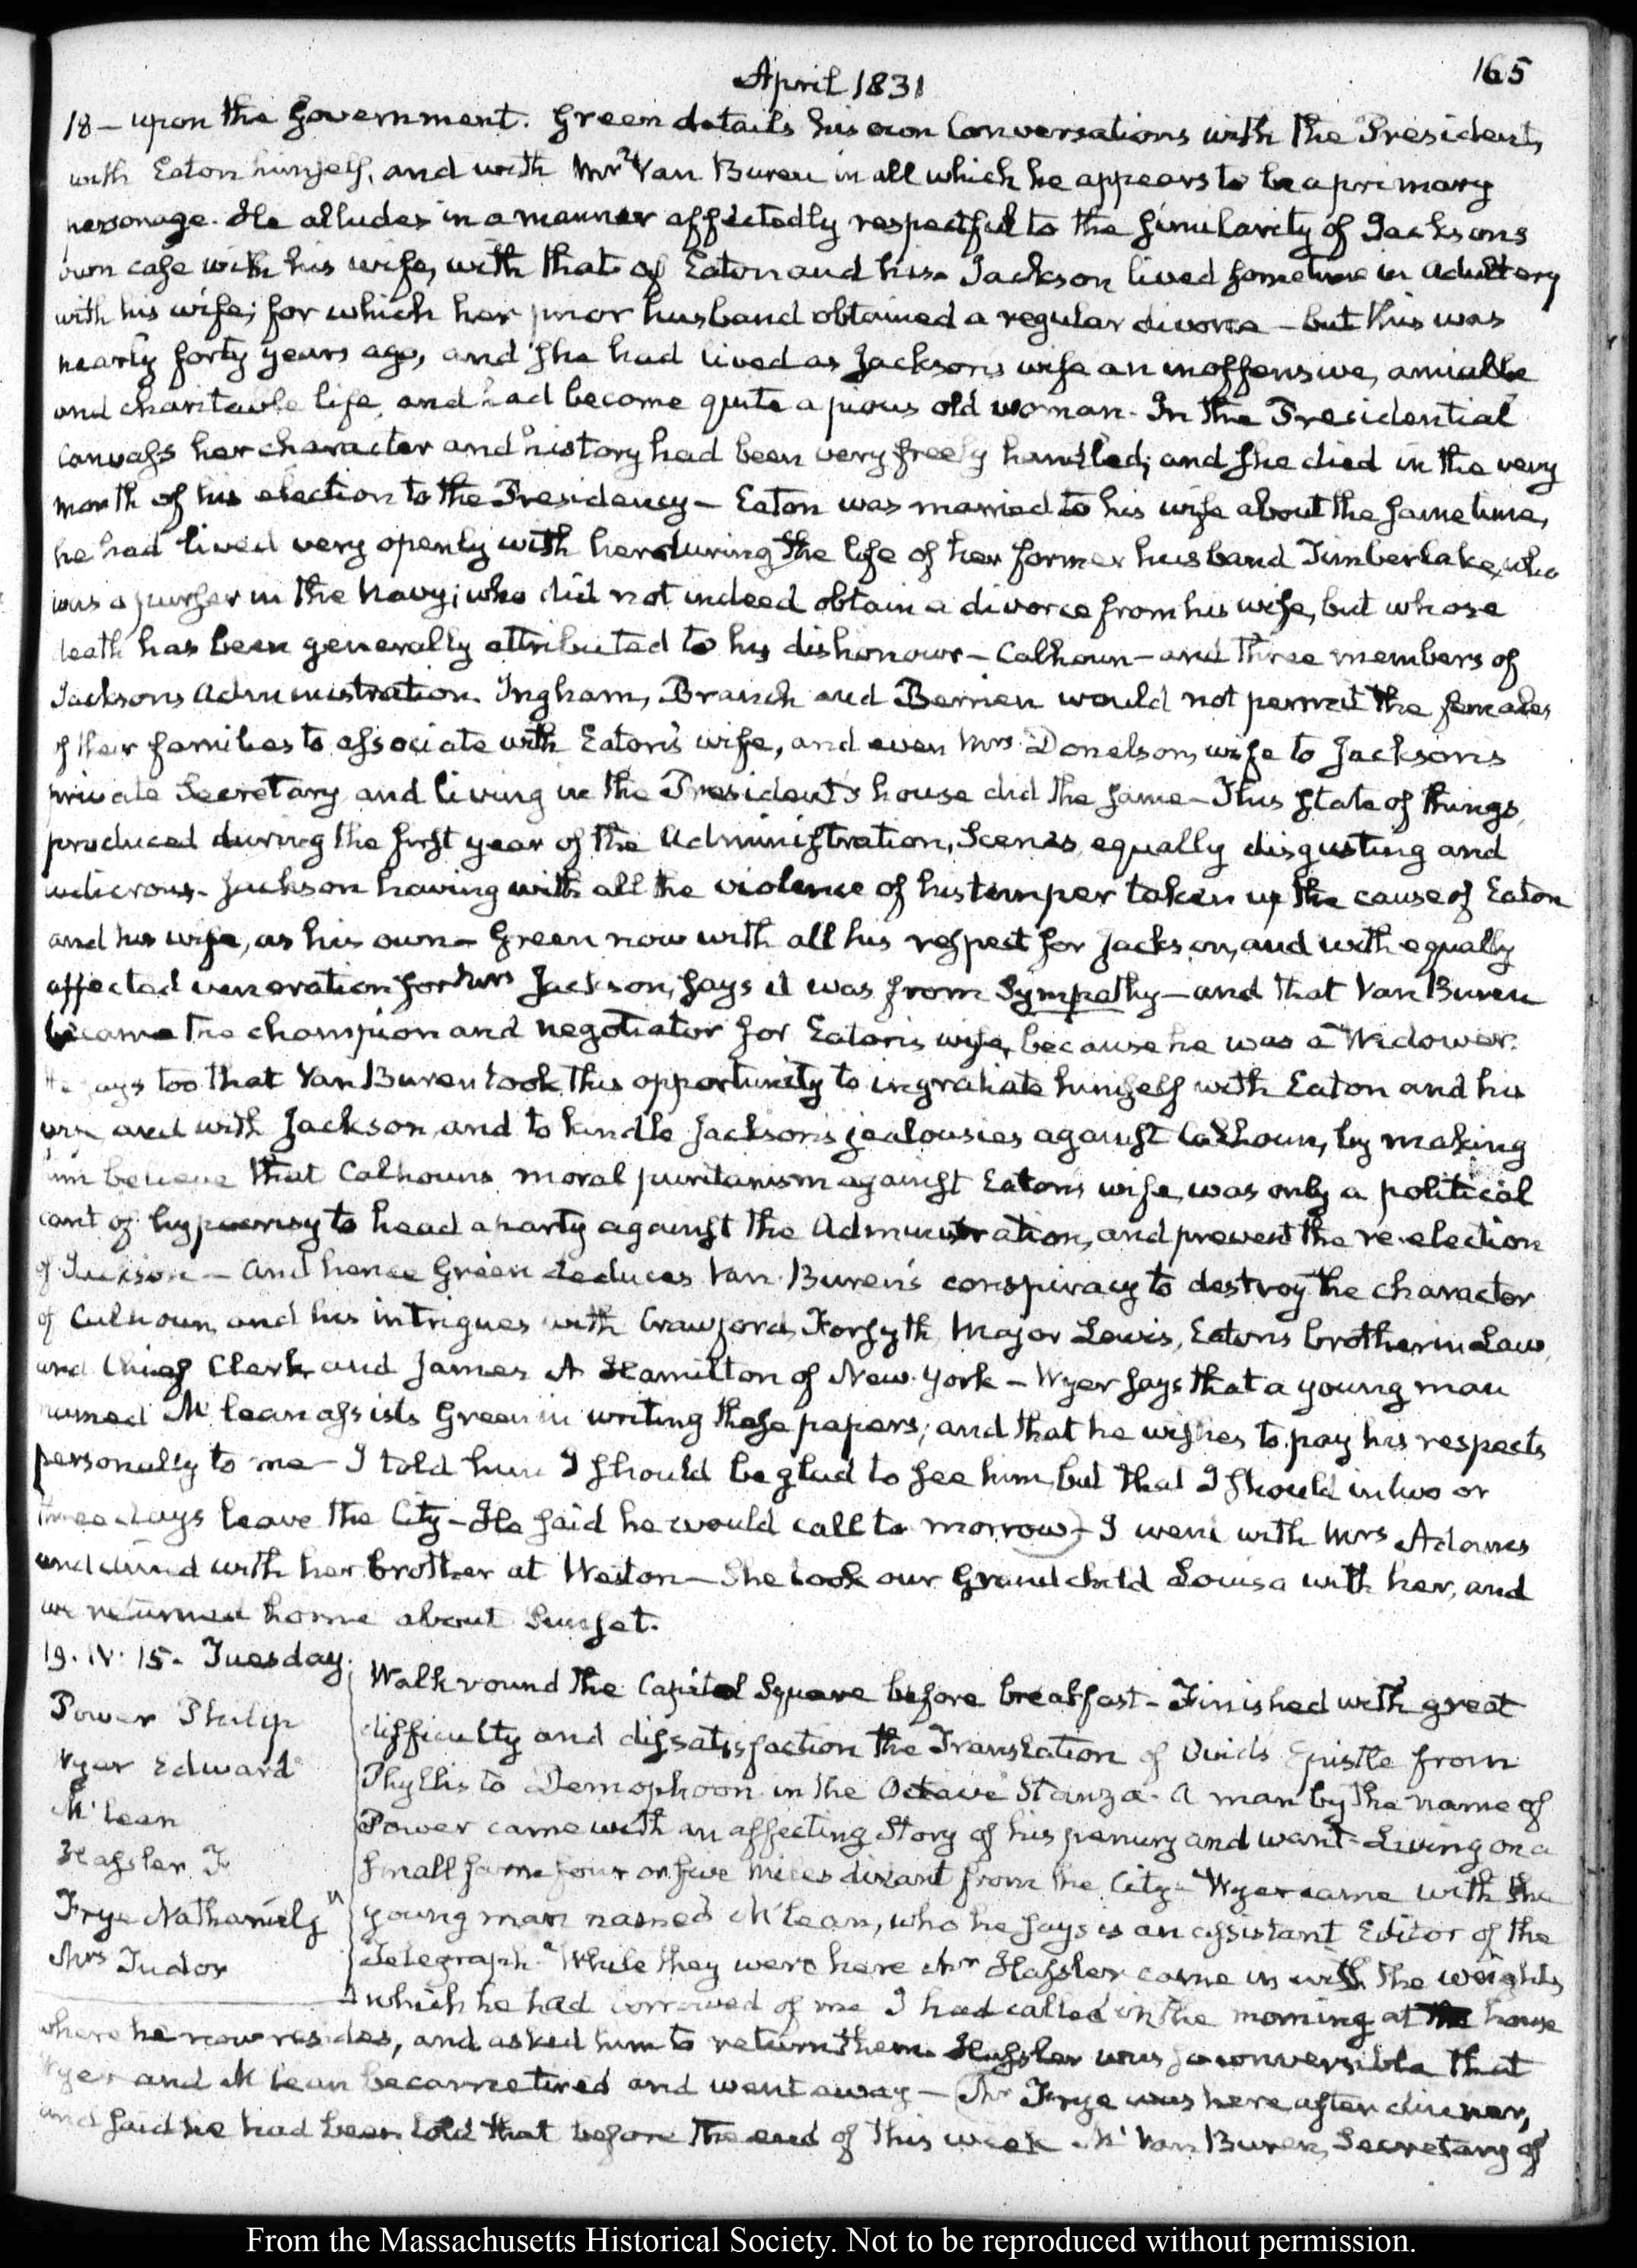 April 1831
165
18 — upon the Government. Green details his own Conversations with the President,
with Eaton himself, and with Mr Van Buren in all which he appears to be a primary
personage. He alludes in a manner affectedly respectful to the similarity of Jacksons
own case with his wife, with that of Eaton and his. Jackson lived sometime in adultery
with his wife; for which her prior husband obtained a regular divorce — but this was
nearly forty years ago, and she had lived as Jackson's wife an inoffensive, amiable
and charitable life, and had become quite a pious old woman. In the Presidential
Canvass her character and history had been very freely handled; and she died in the very
month of his election to the Presidency — Eaton was married to his wife about the same time,
he had lived very openly with her during the life of her former husband Timberlake, who
was a purser in the Navy; who did not indeed obtain a divorce from his wife, but whose
death has been generally attributed to his dishonour — Calhoun — and three members of
Jacksons Administration. Ingham, Branch and Berrien would not permit the females
of their families to associate with Eaton's wife, and even Mrs Donelson, wife to Jackson's
private Secretary and living in the President's house did the same — This state of things,
produced during the first year of the Administration, Scenes equally disgusting and
ludicrous. Jackson having with all the violence of his temper taken up the cause of Eaton
and his wife, as his own — Green now with all his respect for Jackson, and with equally
affected veneration for Mrs Jackson, says it was from Sympathy — and that Van Buren
became the champion and negotiator for Eaton's wife, because he was a Widower.
He says too that Van Buren took this opportunity to ingratiate himself with Eaton and his
wife and with Jackson, and to kindle Jackson's jealousies against Calhoun, by making
him believe that Calhouns moral puritanism against Eatons wife, was only a political
cant of hypocrisy to head a party against the Administration, and prevent the re-election
of Jackson — And hence Green deduces Van Buren's conspiracy to destroy the character
of Calhoun, and his intrigues with Crawford, Forsyth, Major Lewis, Eatons brother in Law,
and Chief Clerk and James A Hamilton of New-York — Wyer says that a young man
named McLean assists Green in writing these papers; and that he wishes to pay his respects
personally to me — I told him I should be glad to see him, but that I should in two or
three days leave the City — He said he would call to morrow) — I went with Mrs Adams
and dined with her brother at Weston — She took our Grand child Louisa with her, and
we returned home about Sunset.
19. IV: 15. Tuesday.
Power Philip
Wyer Edward
McLean
Hassler F
Frye Nathaniel Jr
Mrs Tudor
Walk round the Capitol Square before breakfast — Finished with great
difficulty and dissatisfaction the Translation of Ovids Epistle from
Phyllis to Demophoon in the Octave Stanza. A man by the name of
Power came with an affecting Story of his penury and want — Living on a
small farm four or five miles distant from the City — Wyer came with the
young man named McLean, who he says is an assistant Editor of the
Telegraph. While they were here Mr Hassler came in with the weights,
which he had borrowed of me I had called in the morning at the house
where he now resides, and asked him to return them. Hassler was so conversible that
Wyer and McLean became tired and went away — (Mr Frye was here after dinner,
and said he had been told that before the end of this week Mr Van Buren, Secretary of
From the Massachusetts Historical Society. Not to be reproduced without permission.